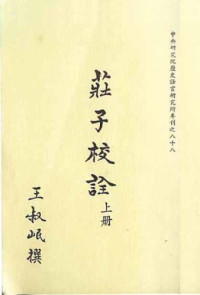 中央研究院歷史語言研究所專刊之八十八
莊子校詮
上册
王叔岷撰